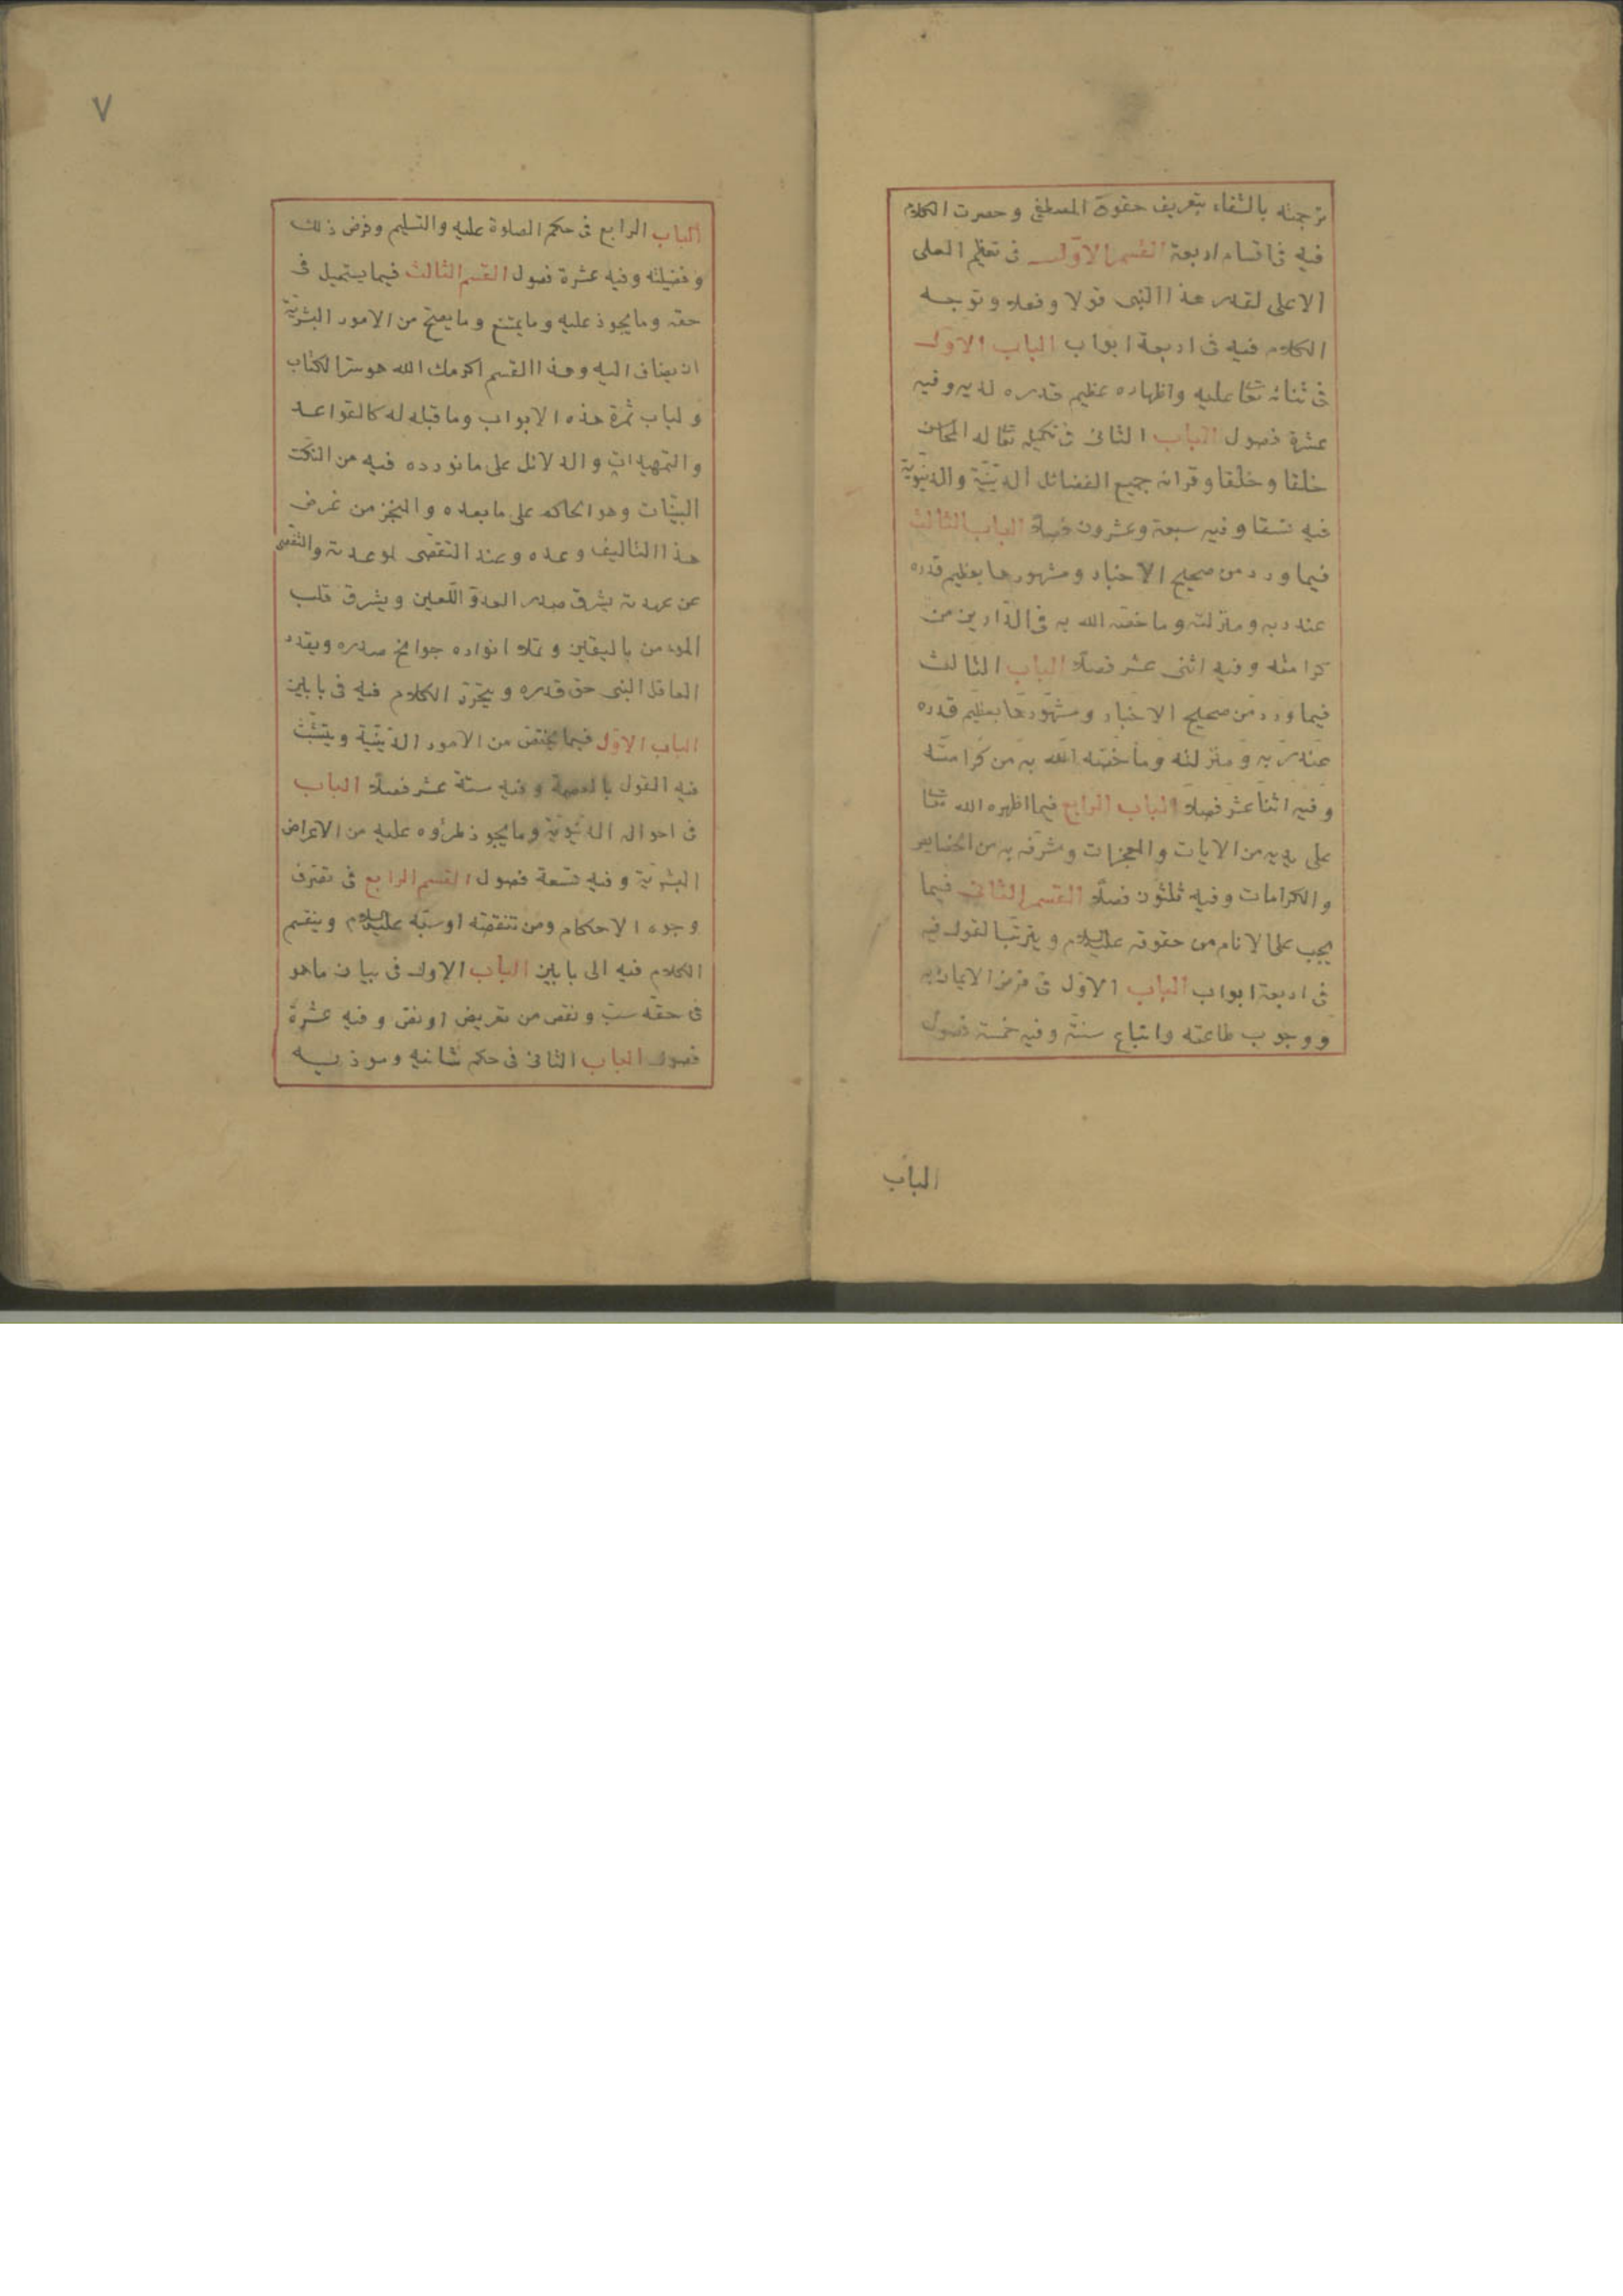 ترجمته بالشفاء بتعريف حقوق المصطفى وحصرت الكلام
فيه فى اقسام اربعة القسم الاول فى تعظيم العلى
الاعلى لقدر هذا النبى قولا وفعلا وتوجه
الكلام فيه فى اربعة ابواب الباب الاول
فى ثنائه تعا عليه واظهاره عظيم قدره لديه وفيه
عشرة فصول الباب الثانى فى تكميله تعا له المحاسن
خلقا وخلقا وقرانه جميع الفضائل الدينية والدنيوية
فيه نسقا وفيه سبعة وعشرون فصلا الباب الثالث
فيما ورد من صحيح الاخبار ومشهورها بعظيم قدره
عند ربه ومنزلته وما خصه الله به فى الدارين من
كرامته وفيه اثنى عشر فصلا الباب الثالث
فيما ورد من صحيح الاخبار ومشهورها بعظيم قدره
عند ربه ومنزلته وما خصه الله به من كرامته
وفيه اثنا عشر فصلا الباب الرابع فيما اظهره الله تعا
على يديه من الايات والمعجزات وشرفه به من الخصايص
والكرامات وفيه ثلثون فصلا القسم الثانى فيما
يجب على الانام من حقوقه عليه السلام ويترتب القول فيه
فى اربعة ابواب الباب الاول فى فرض الايمان به
ووجوب طاعته واتباع سنته وفيه خمسة فصول
الباب
٧
الباب الرابع فى حكم الصلوة عليه والتسليم وفرض ذلك
وفضيلته وفيه عشرة فصول القسم الثالث فيما يستحيل فى
حقه وما يجوز عليه وما يمتنع وما يصح من الامور البشرية
ان يضاف اليه وهذا القسم اكرمك الله هو سر الكتاب
ولباب ثمرة هذه الابواب وما قبله له كالقواعد
والتمهيدات والدلائل على ما نورده فيه من النكت
البينات وهو الحاكم على ما بعده والمنجز من غرض
هذا التاليف وعده وعند التقصى لموعدته والتفصى
عن عهدته يشرق صدر العدو اللعين ويشرق قلب
المؤمن باليقين وتملا انواره جوانح صدره ويقدر
العاقل النبى حق قدره ويتحرر الكلام فيه فى بابين
الباب الاول فيما يختص من الامور الدينية ويتشبث
فيه القول بالعصمة وفيه ستة عشر فصلا الباب
فى احواله الدنيوية وما يجوز طرؤه عليه من الاعراض
البشرية وفيه تسعة فصول القسم الرابع فى تصرف
وجوه الاحكام ومن تنقصه او سبه عليه السلام وينقسم
الكلام فيه الى بابين الباب الاول فى بيان ما هو
فى حقه سب ونقص من تعريض او نص وفيه عشرة
فصول الباب الثانى فى حكم شانيه وموذيه